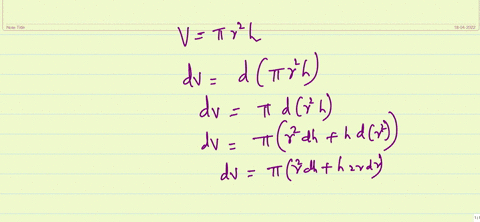 Note Title
V = πr²h
dv = d(πr²h)
dv = π d(r²h)
dv = π(r² dh + h d(r²))
dv = π(r² dh + h 2r dr)